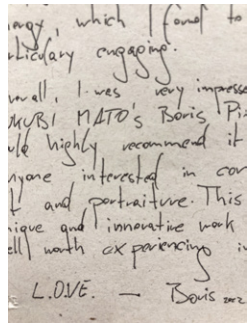 nergy, which I found to
rticulary engaging.
verall, I was very impresse
UKUBI MATO's Boris Pi
uld highly recommend it
nyone interested in con
t and portraiture. This
nique and innovative work
ell worth experiencing i
L.O.V.E. — Boris 2012